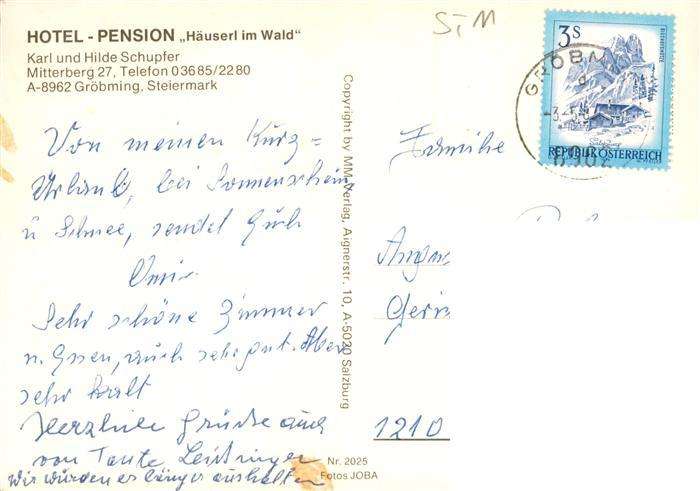 HOTEL - PENSION „Häuserl im Wald"
Karl und Hilde Schupfer
Mitterberg 27, Telefon 03685/2280
A-8962 Gröbming, Steiermark
Von meinen Kurz=
Urlaub, bei Sonnenschein
u Schnee, sendet Euch
Omi.
Sehr schöne Zimmer
u. Essen, auch sehr gut. Aber
sehr kalt
Herzliche Grüße auch
von Tante Leitinger
Wir würden es länger aushalten
Copyright by MM-Verlag, Aignerstr. 10, A-5020 Salzburg
Nr. 2025
Fotos JOBA
StM
3 S
BISCHOFSMÜTZE
REPUBLIK ÖSTERREICH
GRÖBM
Familie
1210